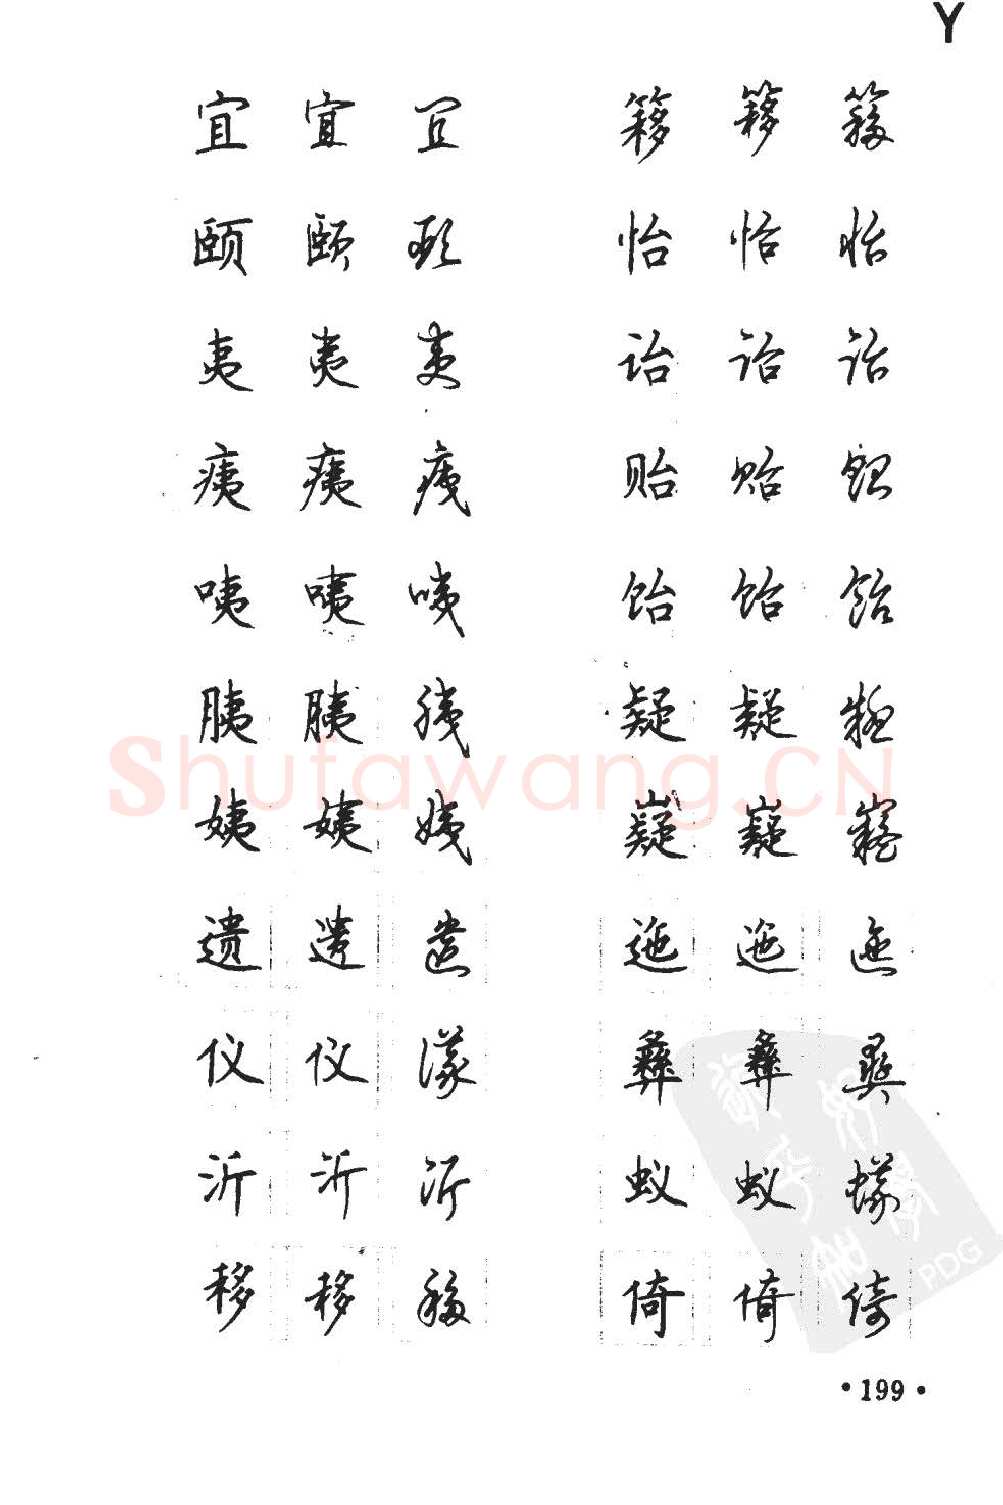 Y
宜 宜 宜 簃 簃 簃
颐 颐 颐 怡 怡 怡
夷 夷 夷 诒 诒 诒
痍 痍 痍 贻 贻 贻
咦 咦 咦 饴 饴 饴
胰 胰 胰 疑 疑 疑
Shufawang.CN
姨 姨 姨 嶷 嶷 嶷
遗 遗 遗 迤 迤 迤
仪 仪 儀 彝 彝 彝
沂 沂 沂 蚁 蚁 蟻
移 移 移 倚 倚 倚
PDG
·199·